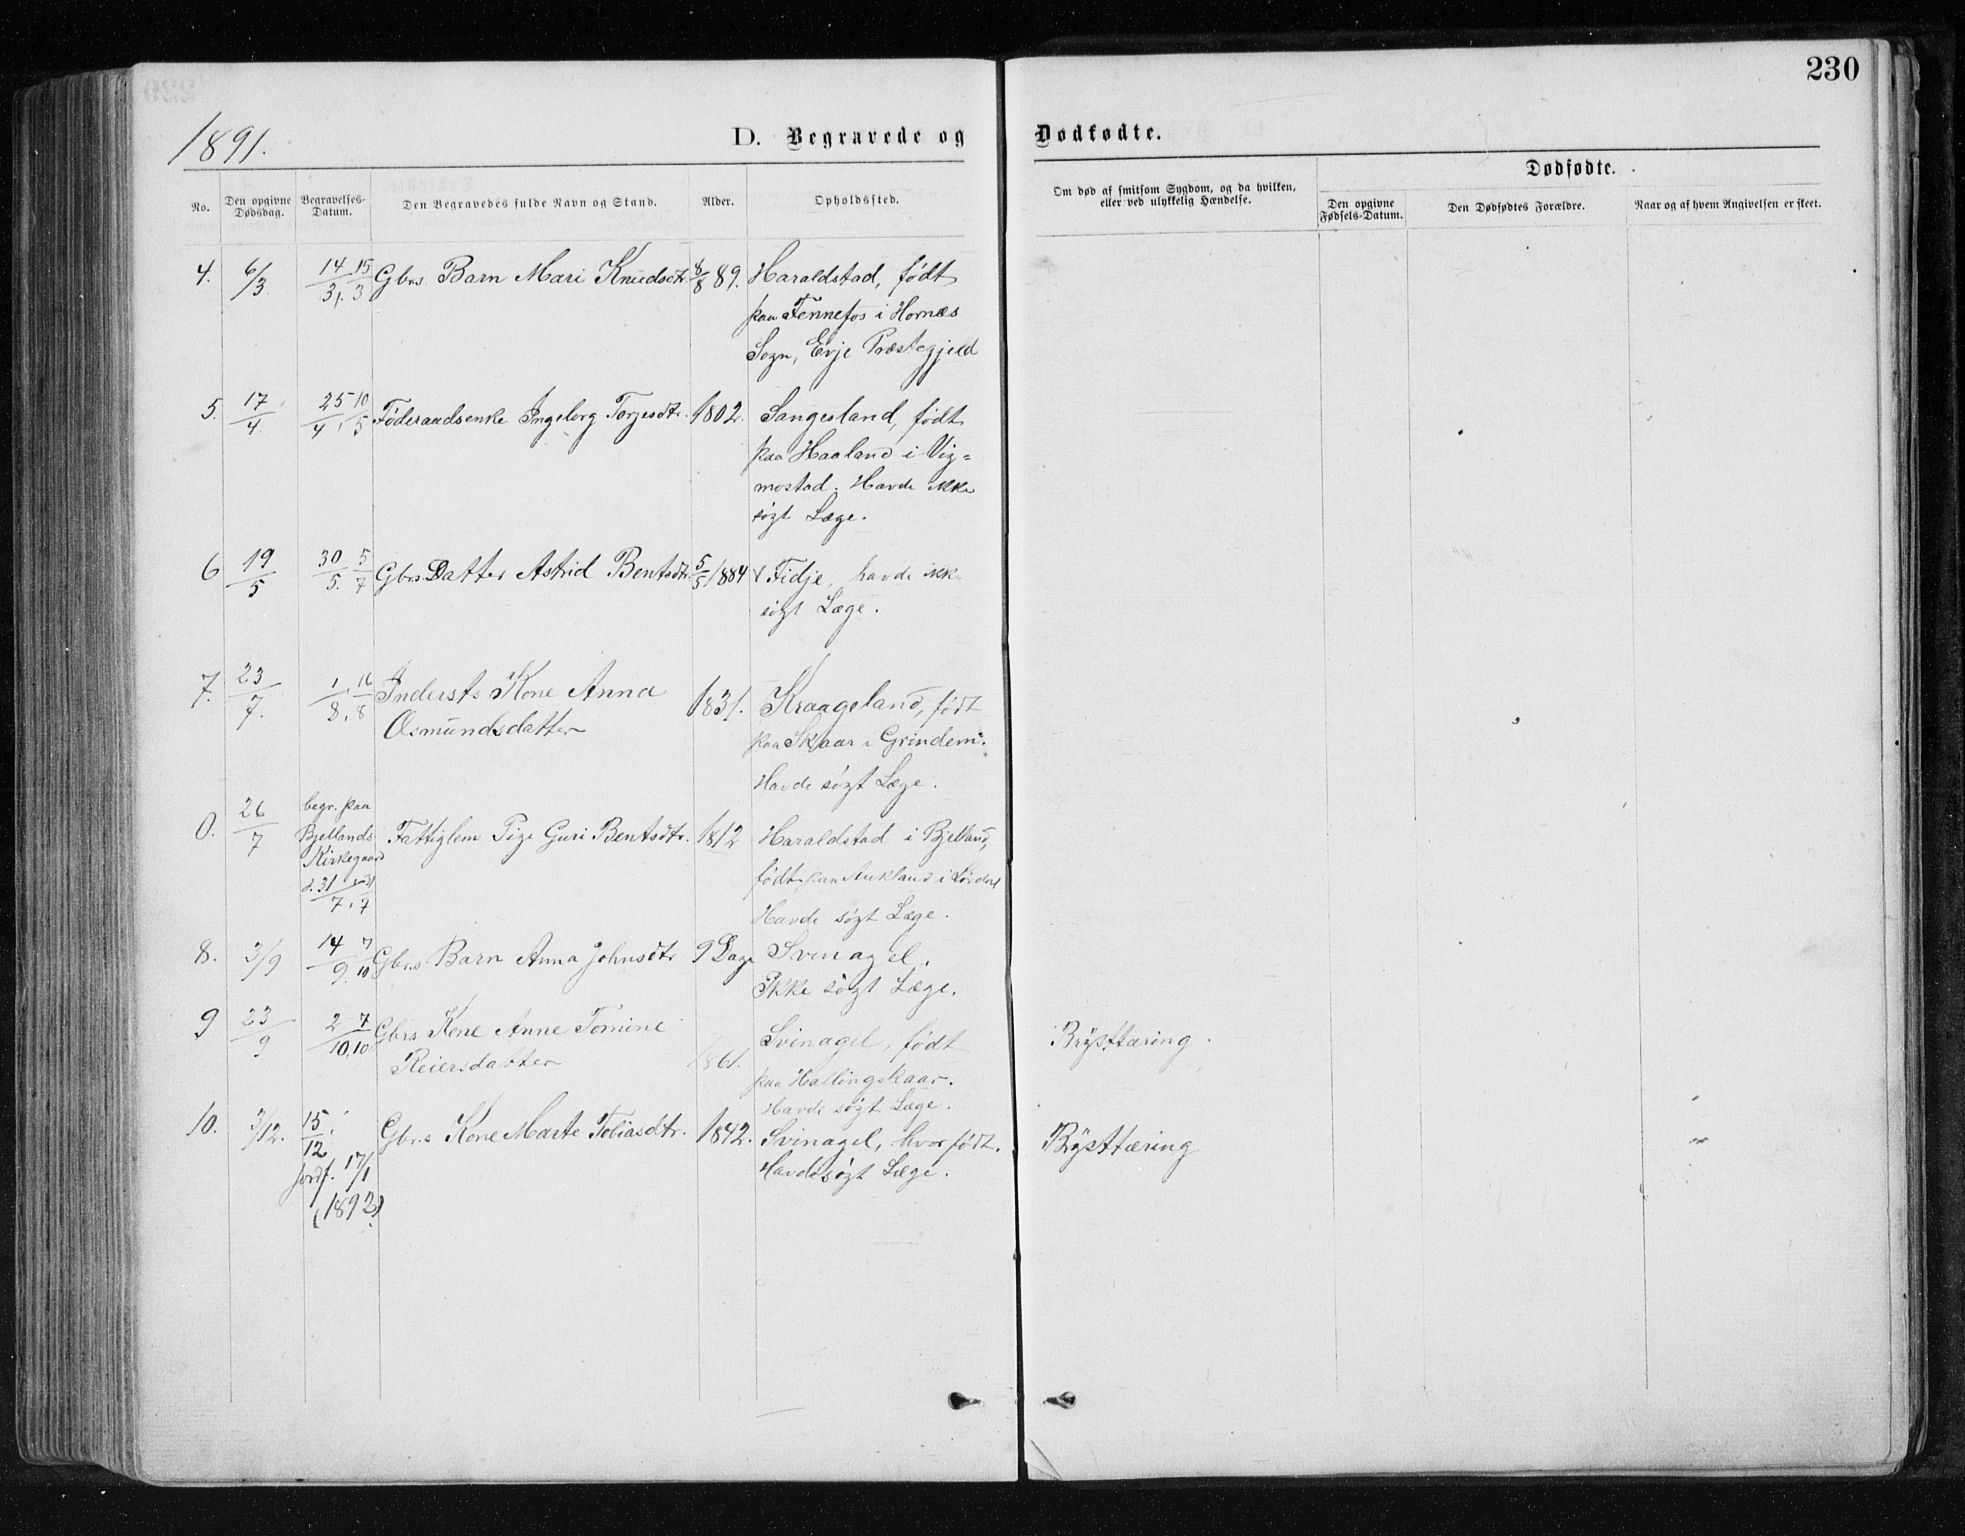 230
1891.
D. Begravede og Dødfødte.
Dødfødte.
No.
Den opgivne Dødsdag.
Begravelses-Datum.
Den Begravedes fulde Navn og Stand.
Alder.
Opholdssted.
Om død af smitsom Sygdom, og da hvilken, eller ved ulykkelig Hændelse.
Den opgivne Fødsels-Datum.
Den Dødfødtes Forældre.
Naar og af hvem Angivelsen er skeet.
4. 6/3. 14/3, 15/3 Gbrs Barn Mari Knudsdtr. 8/8 89. Haraldstad, født
paa Fennefos i Hornæs
Sogn, Evje Præstegjeld
5. 17/4. 25/4, 10/5 Føderaadsenke Ingeborg Torjesdtr. 1802. Sangesland, født
paa Haaland i Vig=
mostad. Havde ikke
søgt Læge.
6 19/5 30/5. 5/7 Gbrs Datter Astrid Bentsdtr. 5/5 1884 Fidje, havde ikke
søgt Læge.
7. 23/7. 1/8, 16/8 Indersts Kone Anna
Osmundsdatter 1831. Kraageland, født
paa Skaar i Grindem.
Havde søgt Læge.
0. 26/7 begr. paa
Bjellands
Kirkegaard
d. 31/7, 31/7
Fattiglem Pige Guri Bentsdtr. 1812 Haraldstad i Bjelland,
født paa Aukland i
Havde søgt Læge.
8. 3/9 14/9, 7/10 Gbrs Barn Anna Johnsdtr 9 Dage Svinagel.
Ikke søgt Læge.
9 23/9 2/10, 7/10 Gbrs Kone Anne Tomine
Reiersdatter 1861. Svinagel, født
paa Hallingskaar.
Havde søgt Læge.
Brysttæring.
10. 3/12. 15/12
Jordf. 17/1
(1892)
Gbr.s Kone Marte Tobiasdtr. 1842. Svinagel, hvor født.
Havde søgt Læge.
Brysttæring